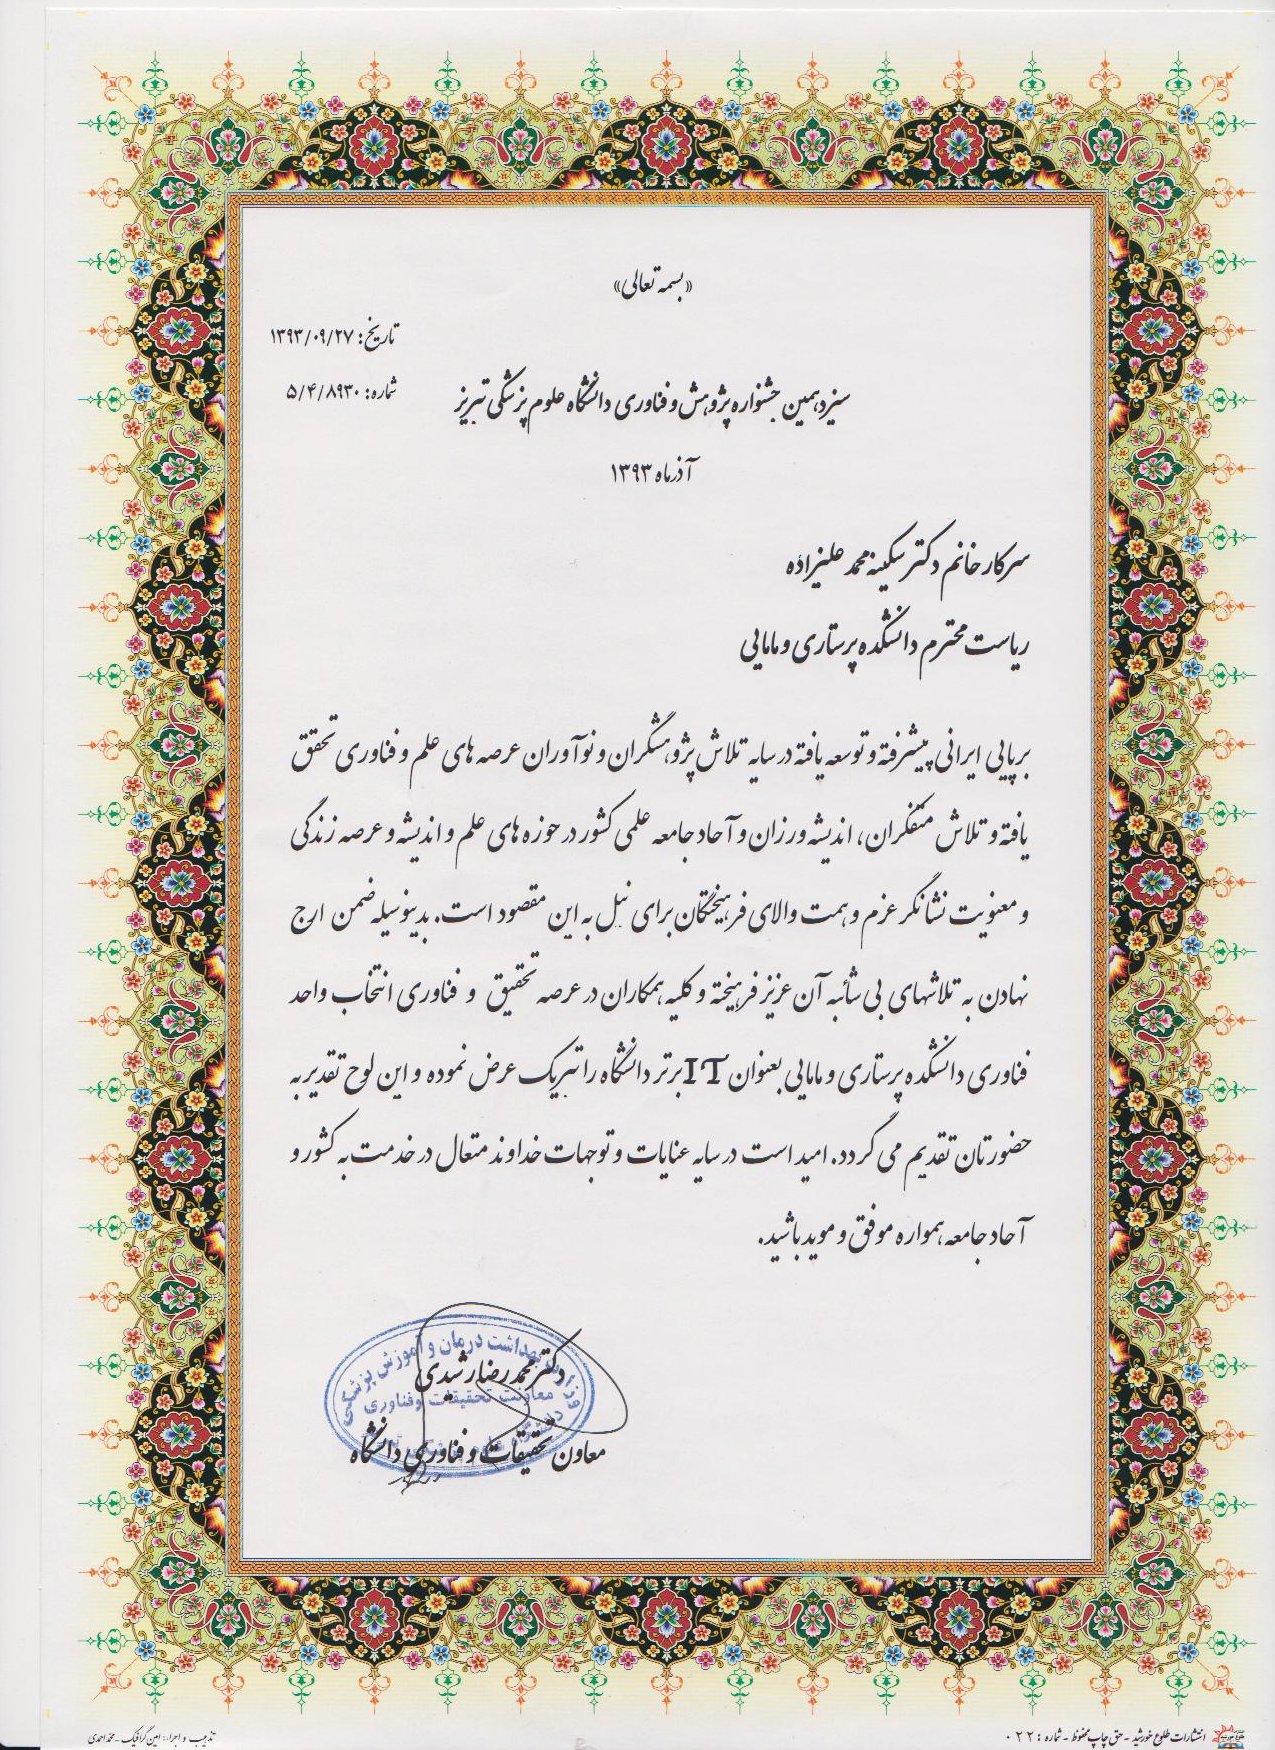 «بسمه تعالی»
تاریخ: ۱۳۹۳/۰۹/۲۷
شماره: ۵/۴/۸۹۳۰
سیزدهمین جشنواره پژوهش و فناوری دانشگاه علوم پزشکی تبریز
آذرماه ۱۳۹۳
سرکار خانم دکتر سکینه محمد علیزاده
ریاست محترم دانشکده پرستاری و مامایی
برپایی ایرانی پیشرفته و توسعه یافته در سایه تلاش پژوهشگران و نوآوران عرصه های علم و فناوری تحقق
یافته و تلاش متفکران، اندیشه ورزان و آحاد جامعه علمی کشور در حوزه های علم و اندیشه و عرصه زندگی
و معنویت نشانگر عزم و همت والای فرهیختگان برای نیل به این مقصود است. بدینوسیله ضمن ارج
نهادن به تلاشهای بی شائبه آن عزیز فرهیخته و کلیه همکاران در عرصه تحقیق و فناوری انتخاب واحد
فناوری دانشکده پرستاری و مامایی بعنوان IT برتر دانشگاه را تبریک عرض نموده و این لوح تقدیر به
حضورتان تقدیم می گردد. امید است در سایه عنایات و توجهات خداوند متعال در خدمت به کشور و
آحاد جامعه همواره موفق و موید باشید.
دکتر محمدرضا رشیدی
معاون تحقیقات و فناوری دانشگاه
وزارت بهداشت درمان و آموزش پزشکی
معاونت تحقیقات و فناوری
انتشارات طلوع خورشید - حق چاپ محفوظ - شماره: ۰۲۲
تذهیب و اجراء: امین گرافیک - محمد احمدی